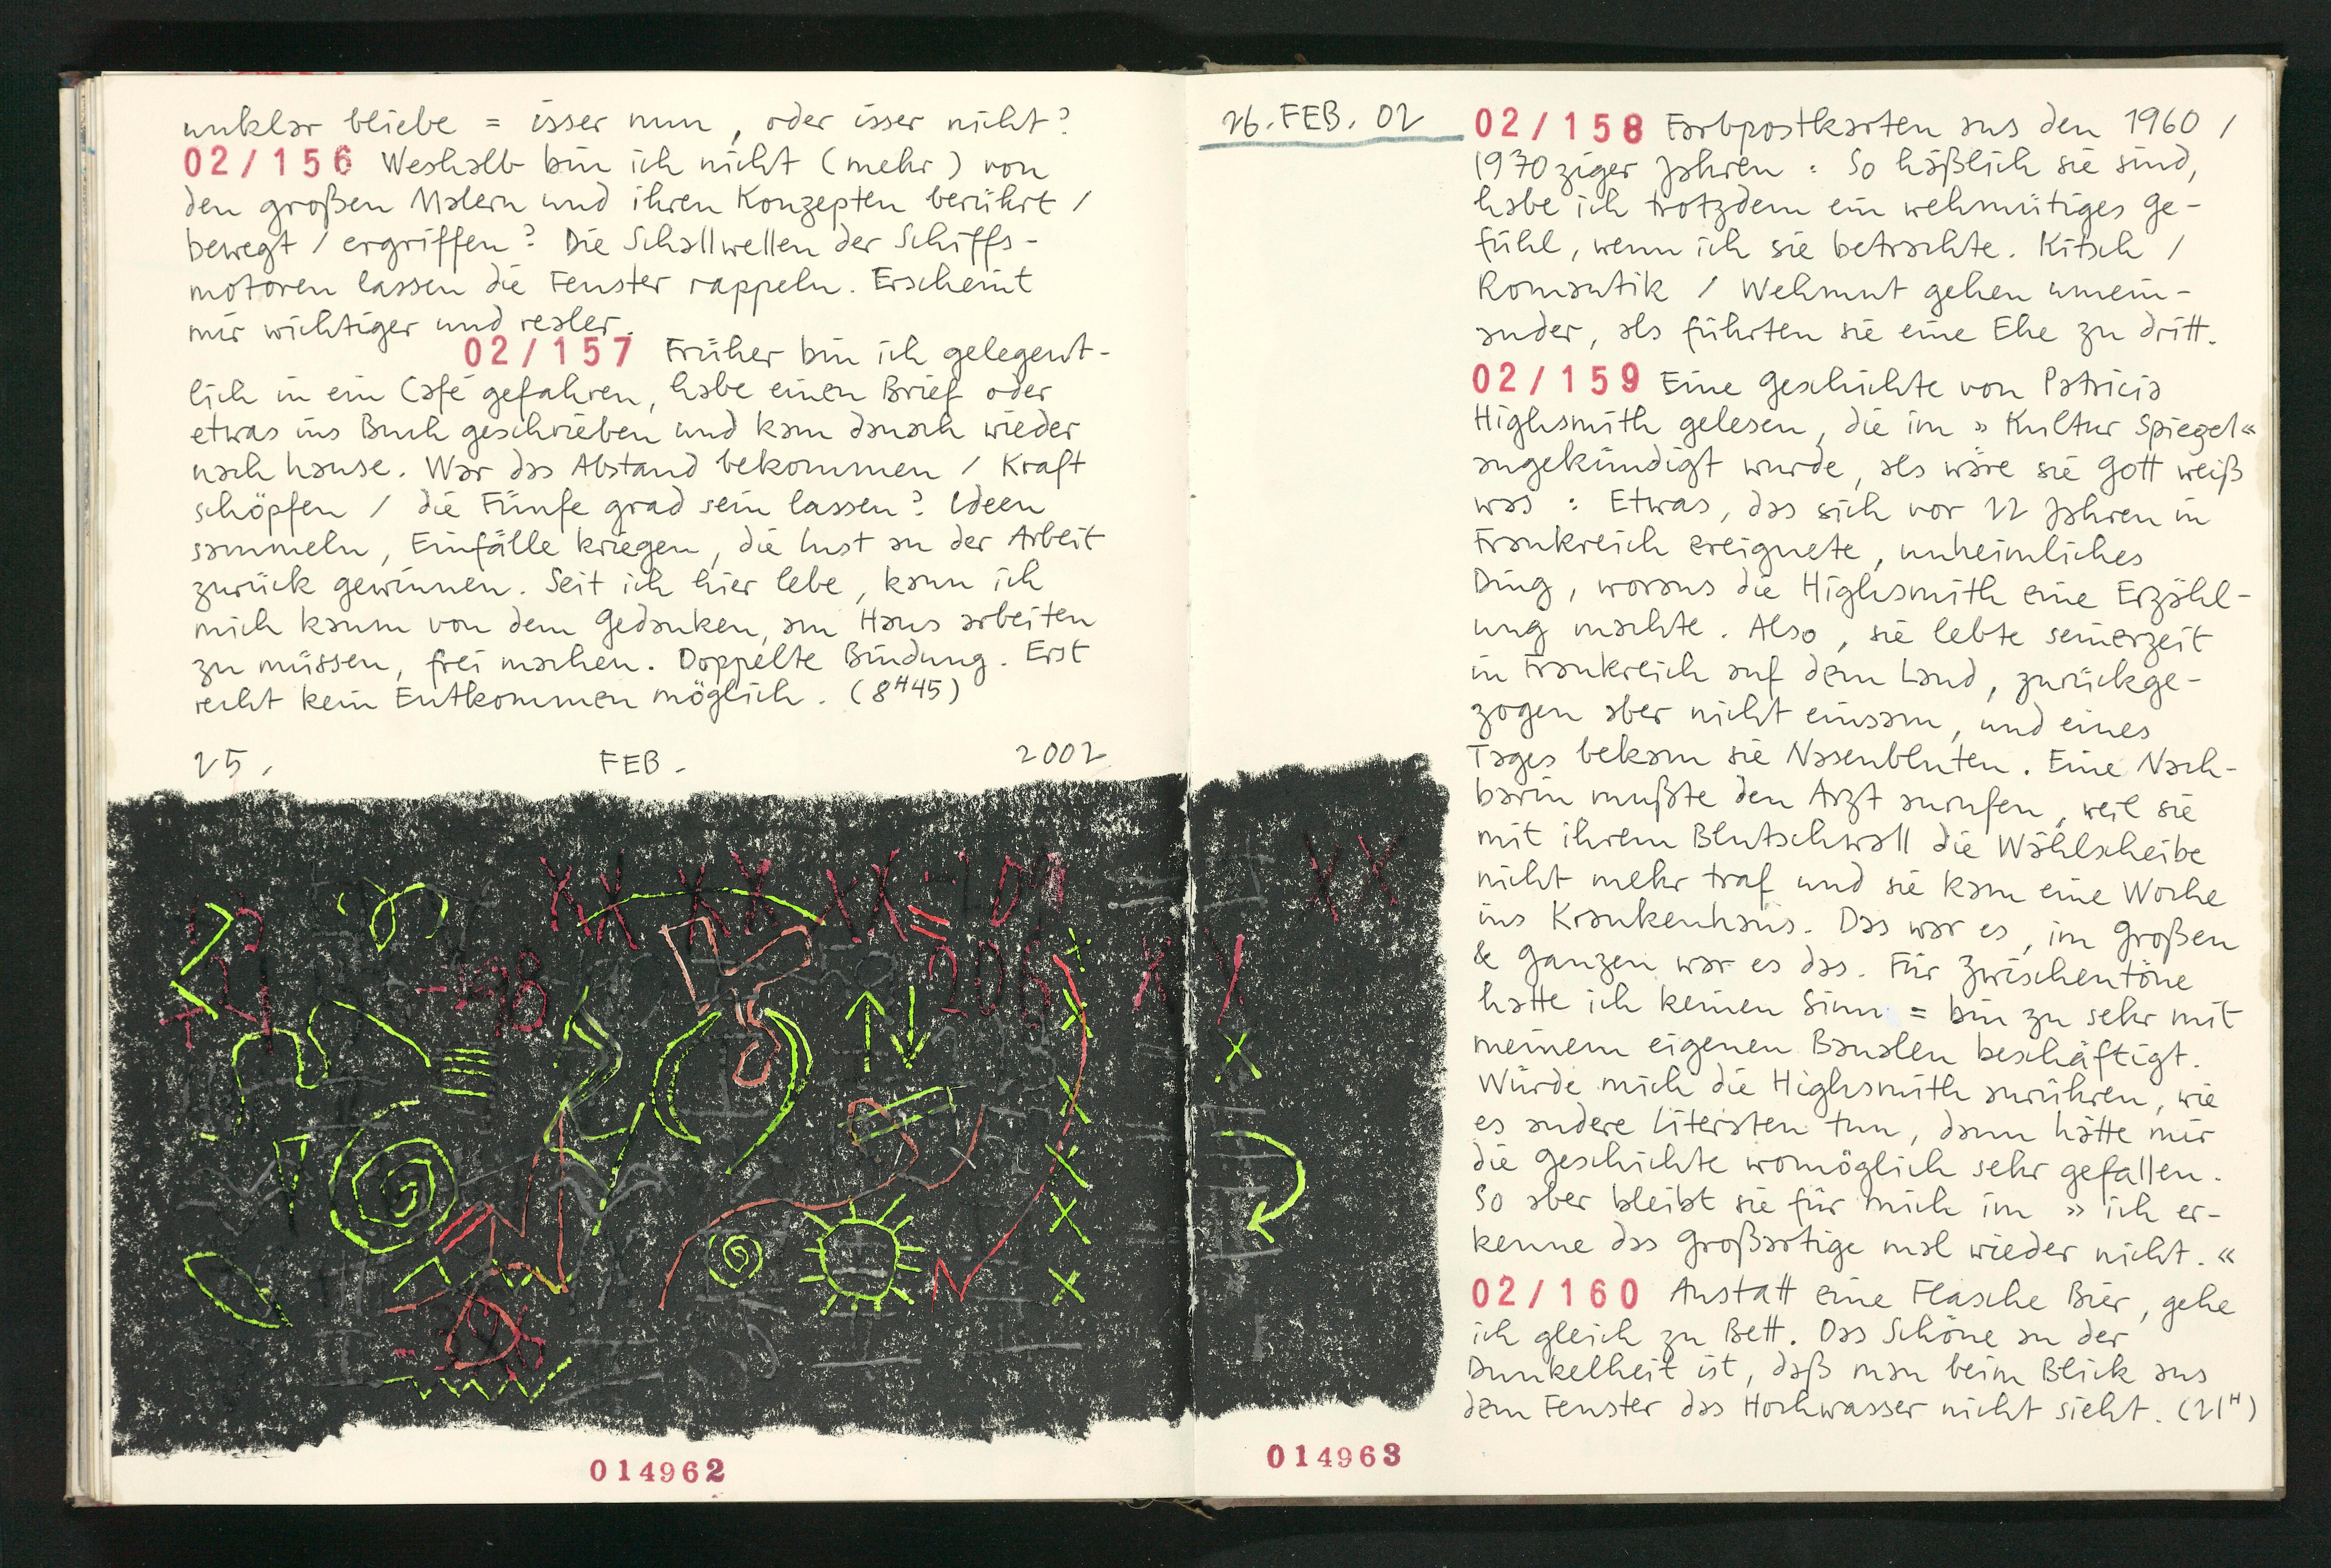 unklar bliebe = isser nun, oder isser nicht?
02/156 Weshalb bin ich nicht (mehr) von
den großen Malern und ihren Konzepten berührt /
bewegt / ergriffen? Die Schallwellen der Schiffs-
motoren lassen die Fenster rappeln. Erscheint
mir wichtiger und realer.
02/157 Früher bin ich gelegent-
lich in ein Café gefahren, habe einen Brief oder
etwas ins Buch geschrieben und kam danach wieder
nach hause. War das Abstand bekommen / Kraft
schöpfen / die Fünfe grad sein lassen? Ideen
sammeln, Einfälle kriegen, die Lust an der Arbeit
zurück gewinnen. Seit ich hier lebe, kann ich
mich kaum von dem Gedanken, am Haus arbeiten
zu müssen, frei machen. Doppelte Bindung. Erst
recht kein Entkommen möglich. (8H45)
25. FEB. 2002
014962
26. FEB. 02
02/158 Farbpostkarten aus den 1960 /
1970ziger Jahren: So häßlich sie sind,
habe ich trotzdem ein wehmütiges Ge-
fühl, wenn ich sie betrachte. Kitsch /
Romantik / Wehmut gehen umein-
ander, als führten sie eine Ehe zu dritt.
02/159 Eine Geschichte von Patricia
Highsmith gelesen, die im » Kultur Spiegel «
angekündigt wurde, als wäre sie Gott weiß
was: Etwas, das sich vor 22 Jahren in
Frankreich ereignete, unheimliches
Ding, woraus die Highsmith eine Erzähl-
ung machte. Also, sie lebte seinerzeit
in Frankreich auf dem Land, zurückge-
zogen aber nicht einsam, und eines
Tages bekam sie Nasenbluten. Eine Nach-
barin mußte den Arzt anrufen, weil sie
mit ihrem Blutschwall die Wählscheibe
nicht mehr traf und sie kam eine Woche
ins Krankenhaus. Das war es, im Großen
& Ganzen war es das. Für Zwischentöne
hatte ich keinen Sinn = bin zu sehr mit
meinem eigenen Banalen beschäftigt.
Würde mich die Highsmith anrühren, wie
es andere Literaten tun, dann hätte mir
die Geschichte womöglich sehr gefallen.
So aber bleibt sie für mich im » ich er-
kenne das Großartige mal wieder nicht. «
02/160 Anstatt eine Flasche Bier, gehe
ich gleich zu Bett. Das Schöne an der
Dunkelheit ist, daß man beim Blick aus
dem Fenster das Hochwasser nicht sieht. (21H)
014963